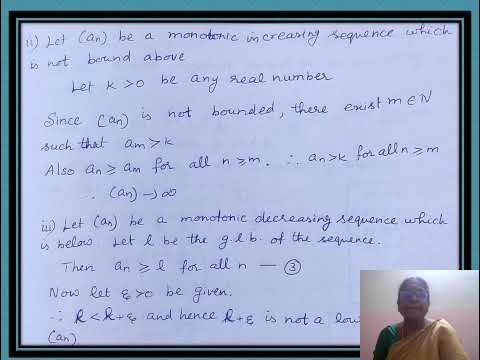 ii) Let (an) be a monotonic increasing sequence which
is not bound above
Let k > 0 be any real number
Since (an) is not bounded, there exist m ∈ N
such that am > k
Also an ≥ am for all n ≥ m. ∴ an > k for all n ≥ m
∴ (an) → ∞
iii) Let (an) be a monotonic decreasing sequence which
is below. Let l be the g.l.b. of the sequence.
Then an ≥ l for all n — ③
Now let ε > 0 be given.
∴ k < k + ε and hence k + ε is not a low
(an)